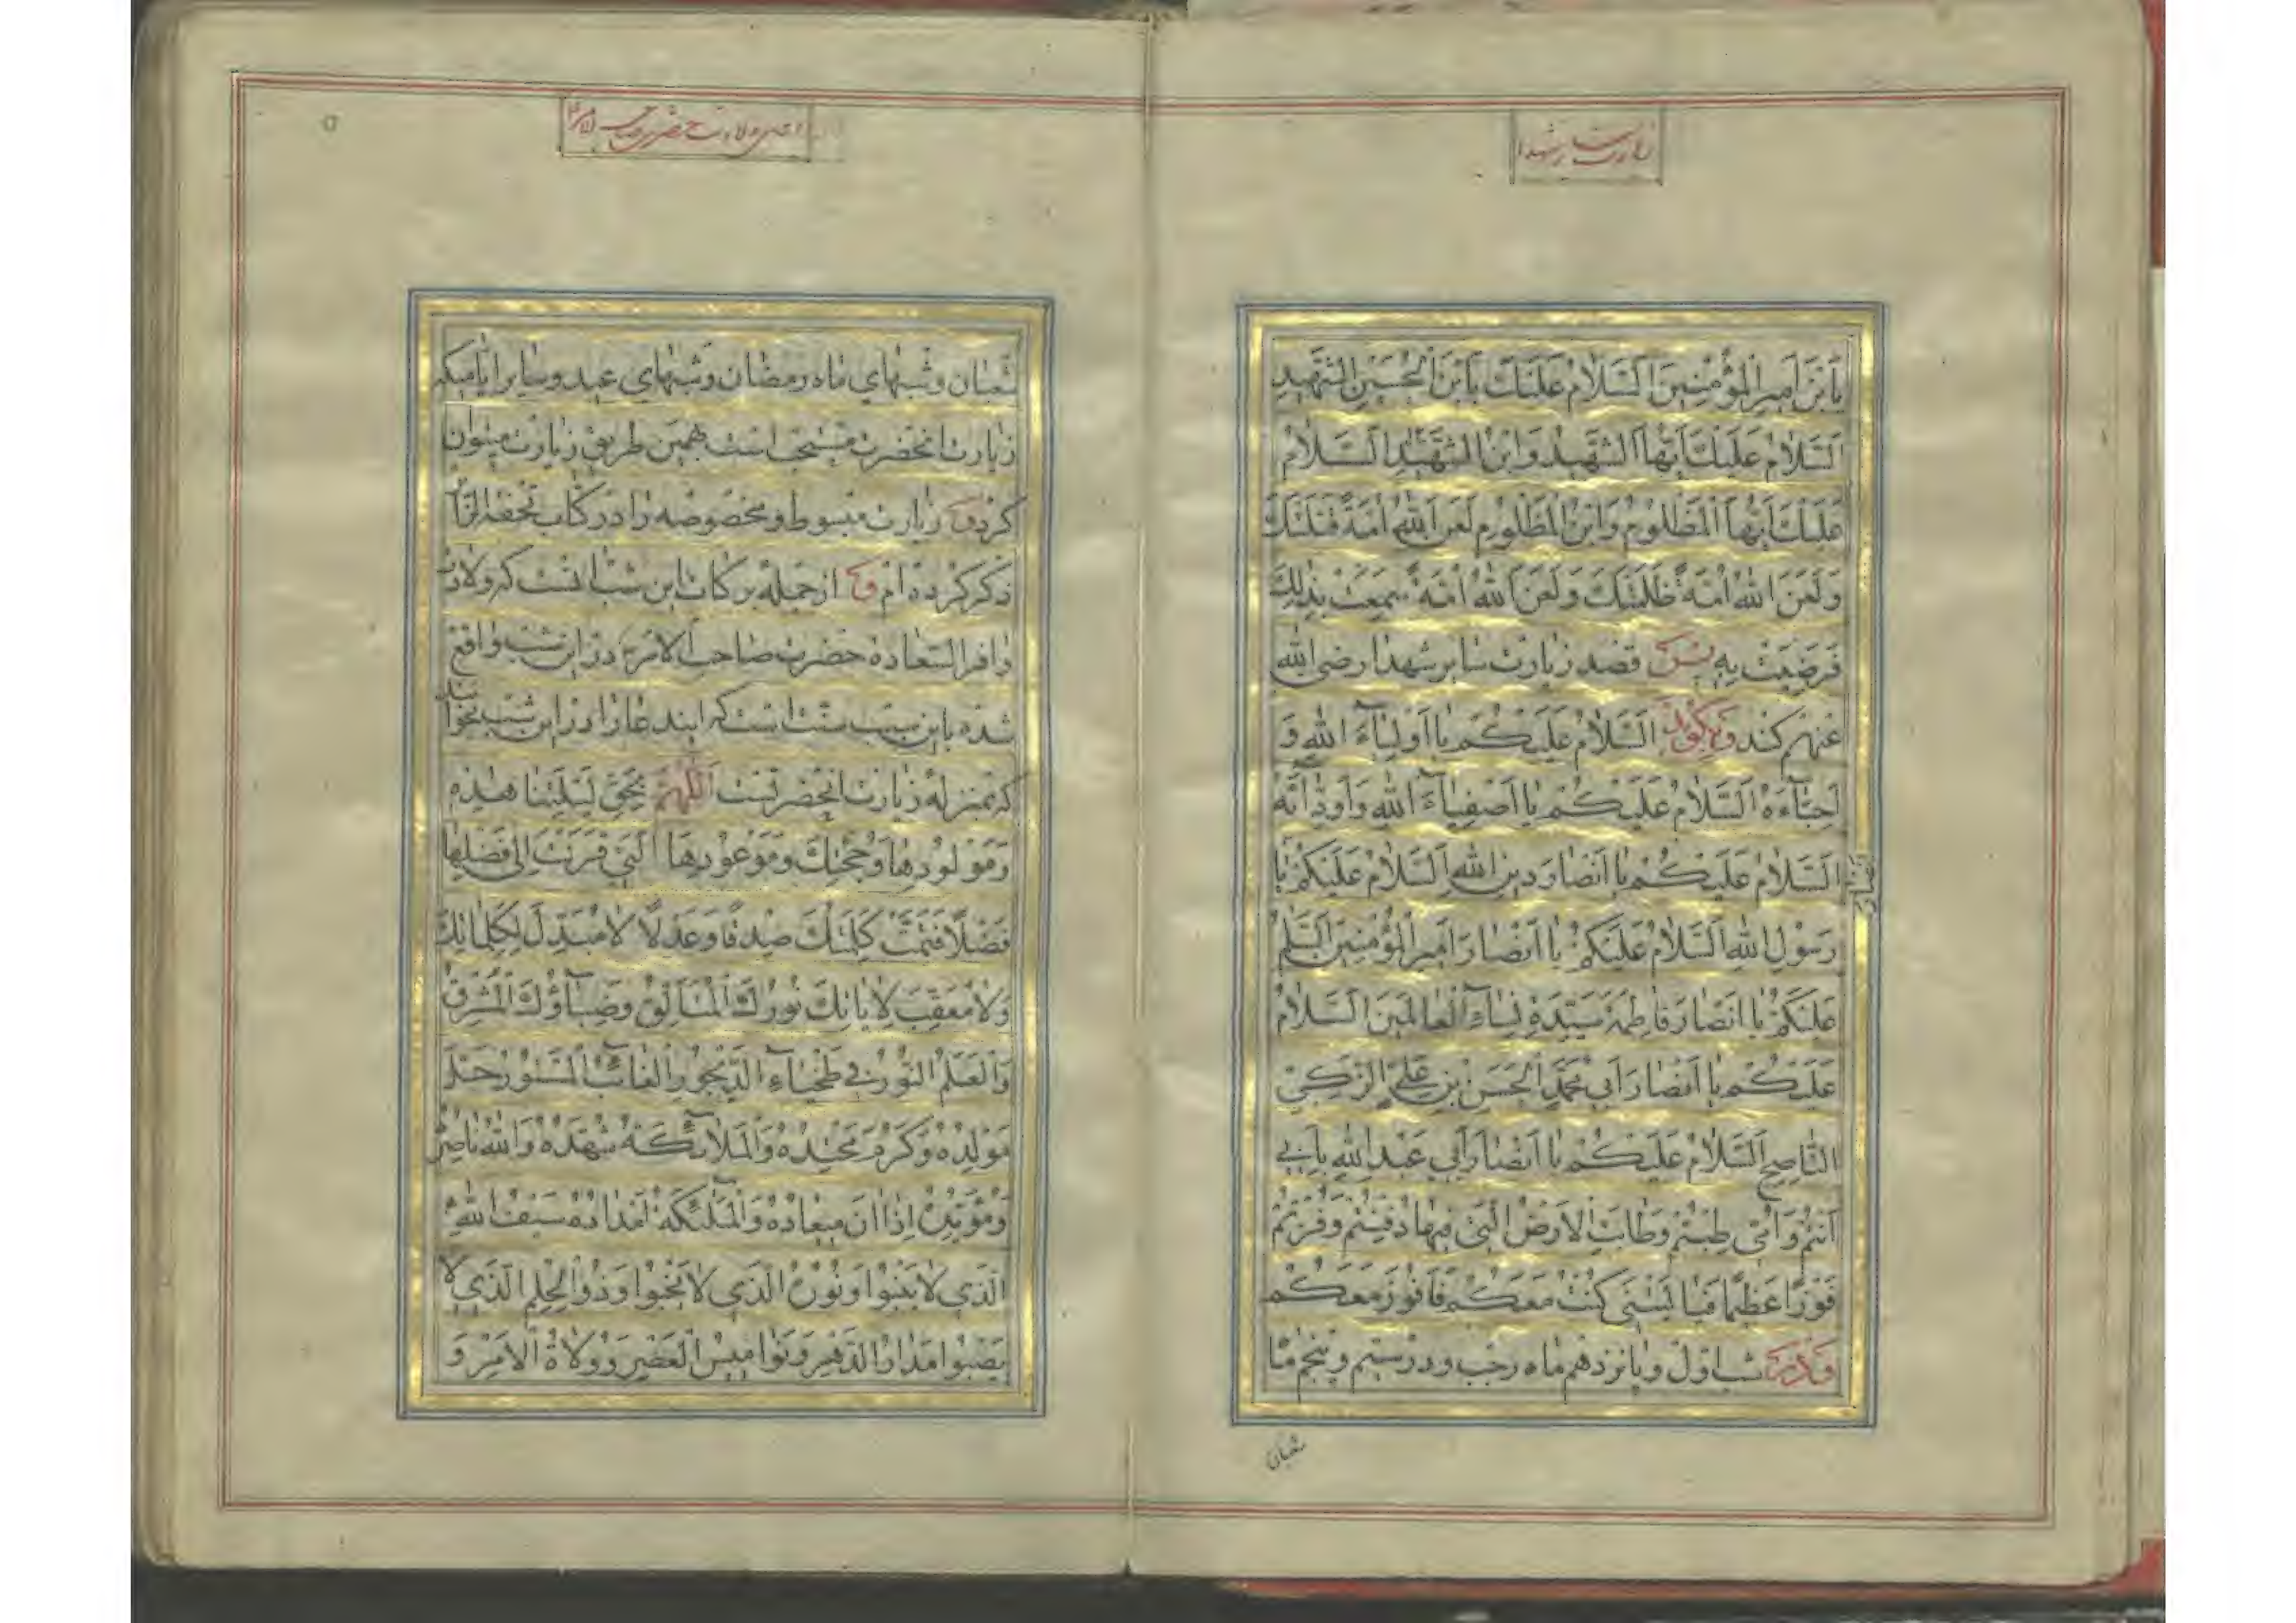 زیارت سایر شهدا
یَابْنَ اَمیرِ الْمُؤْمِنینَ اَلسَّلامُ عَلَیْكَ یَابْنَ الْحُسَیْنِ الشَّهیدِ
اَلسَّلامُ عَلَیْكَ اَیُّهَا الشَّهیدُ وَابْنُ الشَّهیدِ اَلسَّلامُ
عَلَیْكَ اَیُّهَا الْمَظْلُومُ وَابْنُ الْمَظْلُومِ لَعَنَ اللهُ اُمَّةً قَتَلَتْكَ
وَلَعَنَ اللهُ اُمَّةً ظَلَمَتْكَ وَلَعَنَ اللهُ اُمَّةً سَمِعَتْ بِذلِكَ
فَرَضِیَتْ بِهِ پس قصد زیارت سایر شهدا رضی الله
عنهم کند و بگوید اَلسَّلامُ عَلَیْكُمْ یا اَوْلِیآءَ اللهِ وَ
اَحِبّآءَهُ اَلسَّلامُ عَلَیْكُمْ یا اَصْفِیآءَ اللهِ وَ اَوِدّآئَهُ
اَلسَّلامُ عَلَیْكُمْ یا اَنْصارَ دینِ اللهِ اَلسَّلامُ عَلَیْكُمْ یا
انصار
رَسُولِ اللهِ اَلسَّلامُ عَلَیْكُمْ یا اَنْصارَ اَمیرِ الْمُؤْمِنینَ اَلسَّلامُ
عَلَیْكُمْ یا اَنْصارَ فاطِمَةَ سَیِّدَةِ نِسآءِ الْعالَمینَ اَلسَّلامُ
عَلَیْكُمْ یا اَنْصارَ اَبی مُحَمَّدٍ الْحَسَنِ بْنِ عَلِیٍّ الزَّكِیِّ
النّاصِحِ اَلسَّلامُ عَلَیْكُمْ یا اَنْصارَ اَبی عَبْدِ اللهِ بِاَبی
اَنْتُمْ وَ اُمّی طِبْتُمْ وَ طابَتِ الْاَرْضُ الَّتی فیها دُفِنْتُمْ وَ فُزْتُمْ
فَوْزًا عَظیمًا فَیا لَیْتَنی كُنْتُ مَعَكُمْ فَاَفُوزَ مَعَكُمْ
و در شب اول و پانزدهم ماه رجب و در ستیم و پنجم ماه
شعبان
ولادت حضرت صاحب الامر
شعبان و شبهای ماه رمضان و شبهای عید و سایر ایام متبرکه
زیارت انحضرت مستحب است بهمین طریق زیارت میتوان
کرد و زیارت مبسوط و مخصوصه را در کتاب تحفة الزائر
ذکر کرده ام و از جمله برکات این شب آنست که ولادت
وافر السعادة حضرت صاحب الامر در این شب واقع
شده باین سبب سنت است که ایند عا را در این شب بخوانند
که بمنزله زیارت انحضرتست اَللّهُمَّ بِحَقِّ لَیْلَتِنا هذِهِ
وَ مَوْلُودِها وَ حُجَّتِكَ وَ مَوْعُودِها الَّتی قَرَنْتَ اِلی فَضْلِها
فَضْلًا فَتَمَّتْ كَلِمَتُكَ صِدْقًا وَ عَدْلًا لا مُبَدِّلَ لِكَلِماتِكَ
وَلا مُعَقِّبَ لِایاتِكَ نُورُكَ الْمُتَاَلِّقُ وَ ضِیآؤُكَ الْمُشْرِقُ
وَ الْعَلَمُ النُّورُ فی طَخْیآءِ الدَّیْجُورِ الْغائِبُ الْمَسْتُورُ جَلَّ
مَوْلِدُهُ وَ كَرُمَ مَحْتِدُهُ وَ الْمَلائِكَةُ شُهَّدُهُ وَ اللهُ ناصِرُهُ
وَ مُؤَیِّدُهُ اِذا انَ میعادُهُ وَ الْمَلئِكَةُ اَمْدادُهُ سَیْفُ اللهِ
الَّذی لا یَنْبُوا وَ نُورُهُ الَّذی لا یَخْبُوا وَ ذُو الْحِلْمِ الَّذی لا
یَصْبُوا مَدارُ الدَّهْرِ وَ نَوامیسُ الْعَصْرِ وَ وُلاةُ الْاَمْرِ وَ